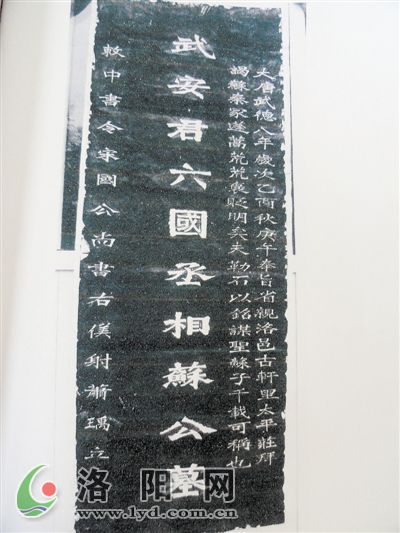 大唐武德八年歲次乙酉秋庚午奉旨省親洛邑古軒里太平莊拜
謁蘇秦冢遂萬荒荒褒貶明矣夫勒石以銘謀聖蘇子千載可稱也
武安君六國丞相蘇公墓
敕中書令宋國公尚書右僕射蕭瑀立
洛阳网
www.lyd.com.cn